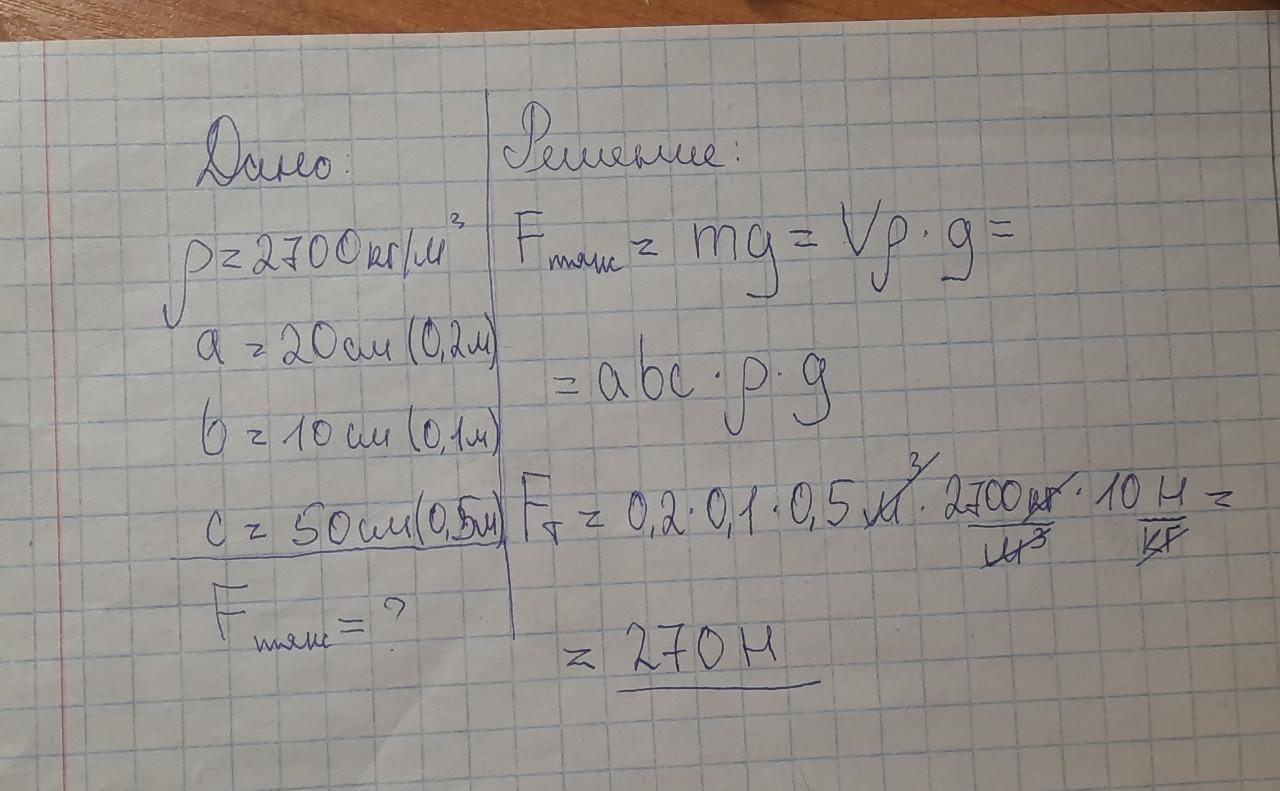 Дано:
ρ = 2700 кг/м³
a = 20 см (0,2м)
b = 10 см (0,1м)
c = 50 см (0,5м)
Fтяж = ?
Решение:
Fтяж = mg = Vρ · g =
= abc · ρ · g
Fт = 0,2 · 0,1 · 0,5 м³ · 2700 кг/м³ · 10 Н/кг =
= 270 Н